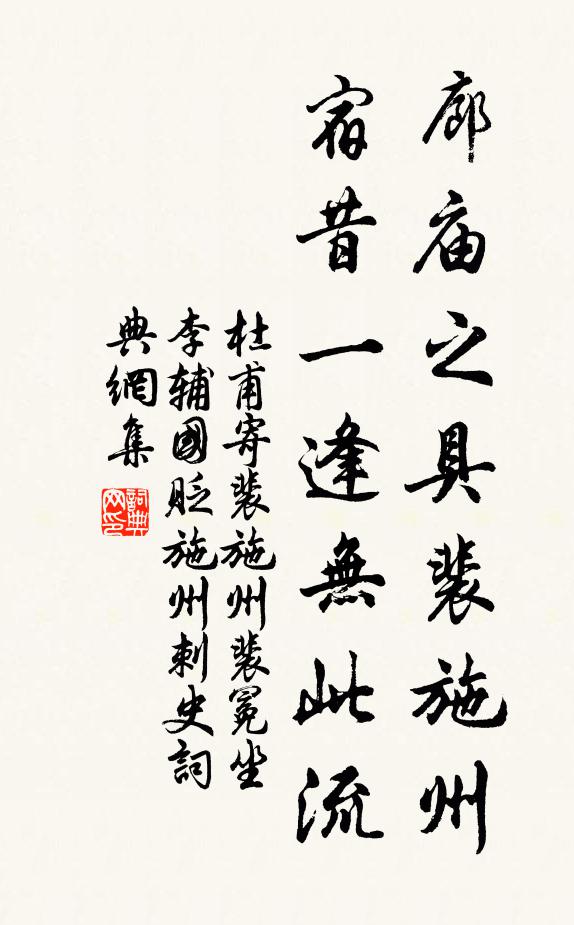 廊庙之具裴施州
宿昔一逢無此流
杜甫寄裴施州裴冕坐
李輔國貶施州刺史詞
典網集
詞典
网印